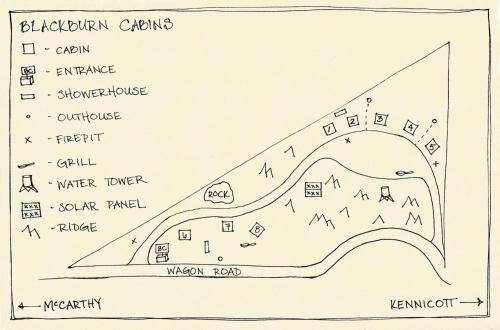 BLACKBURN CABINS
- CABIN
BC - ENTRANCE
- SHOWERHOUSE
- OUTHOUSE
x - FIREPIT
- GRILL
- WATER TOWER
xxx
xxx - SOLAR PANEL
- RIDGE
1
2
3
4
5
ROCK
xxx
xxx
6
7
8
BC
WAGON ROAD
McCARTHY
KENNICOTT